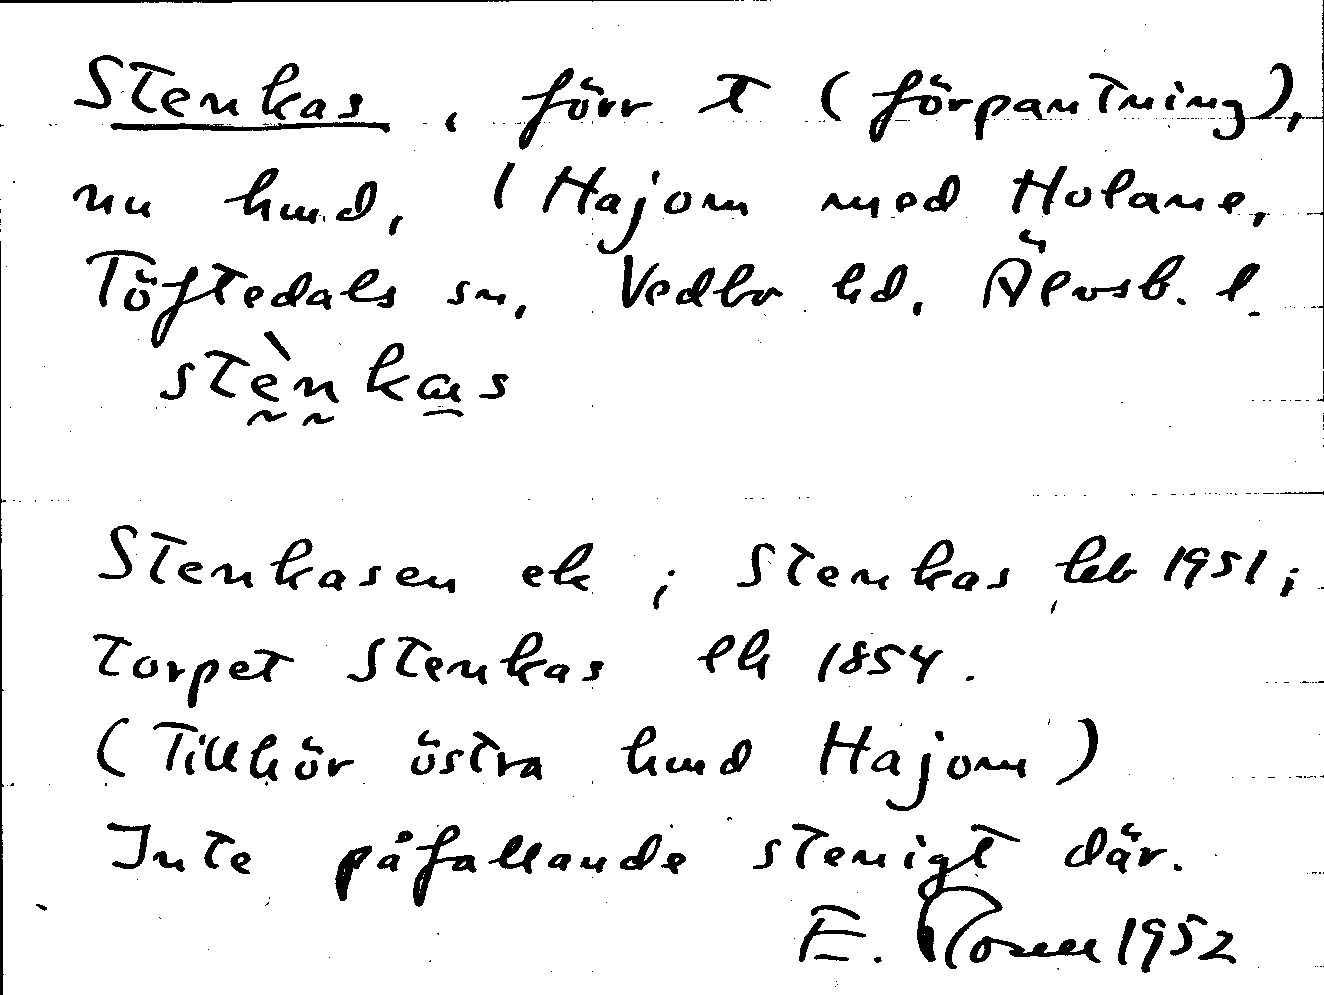 Stenkas, förr t (förpantning),
nu hmd, i Hajom med Holane,
Töftedals sn, Vedbo hd, Älvsb. l.
stènkas
Stenkasen ek ; Stenkas leb 1951 ;
torpet Stenkas lh 1854.
(Tillhör östra hmd Hajom)
Inte påfallande stenigt där.
E. Rosen 1952